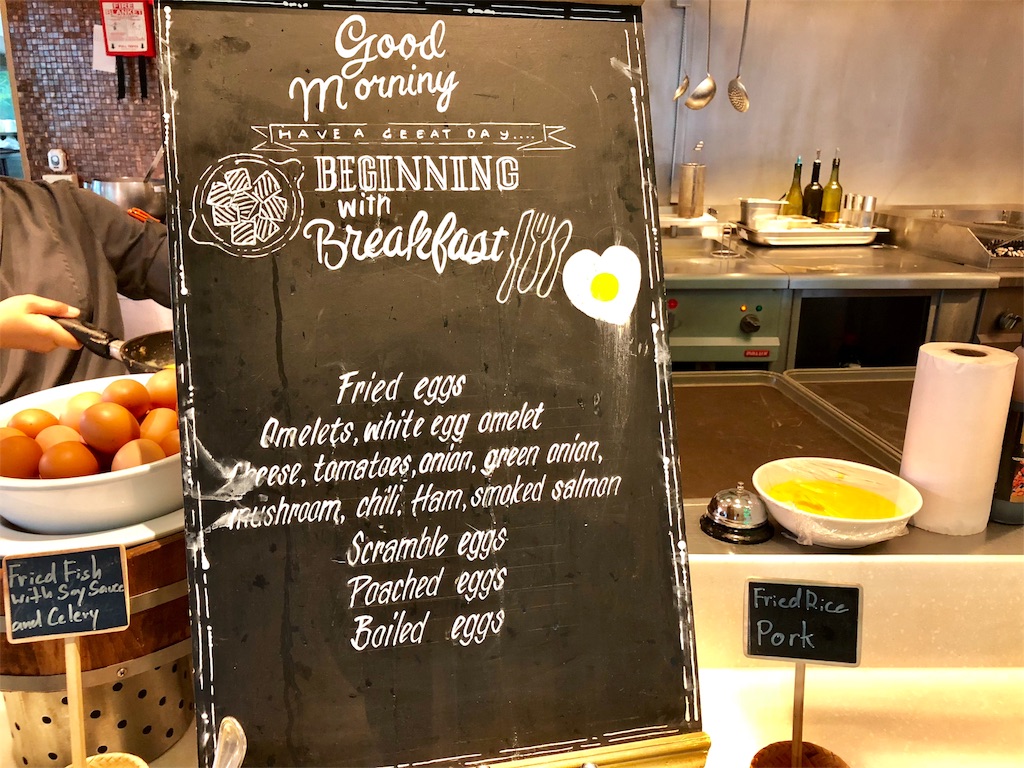 FIRE BLANKET
Good
Morning
HAVE A GEEAT DAY....
BEGINNING
with
Breakfast
Fried eggs
Omelets, white egg omelet
cheese, tomatoes, onion, green onion,
mushroom, chili, Ham, smoked salmon
Scramble eggs
Poached eggs
Boiled eggs
Fried Fish
with Soy Sauce
and Celery
Fried Rice
Pork